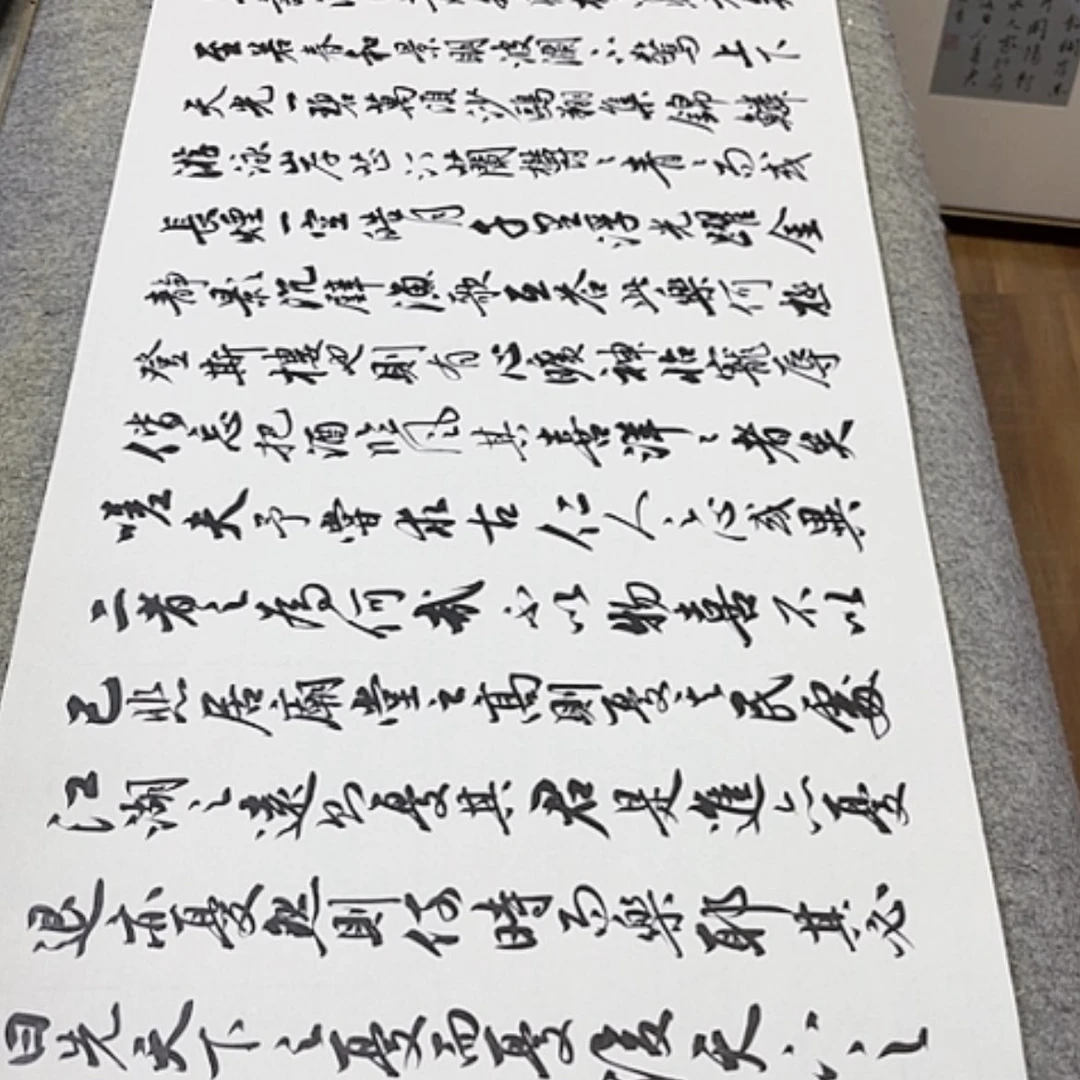 至若春和景明波瀾不驚上下
天光一碧萬頃沙鷗翔集錦鱗
游泳岸芷汀蘭鬱〻青〻而或
長煙一空皓月千里浮光躍金
靜影沉璧漁歌互答此樂何極
登斯樓也則有心曠神怡寵辱
偕忘把酒臨風其喜洋〻者矣
嗟夫予嘗求古仁人之心或異
二者之為何哉不以物喜不以
己悲居廟堂之高則憂其民處
江湖之遠則憂其君是進亦憂
退亦憂然則何時而樂耶其必
曰先天下之憂而憂後天下之